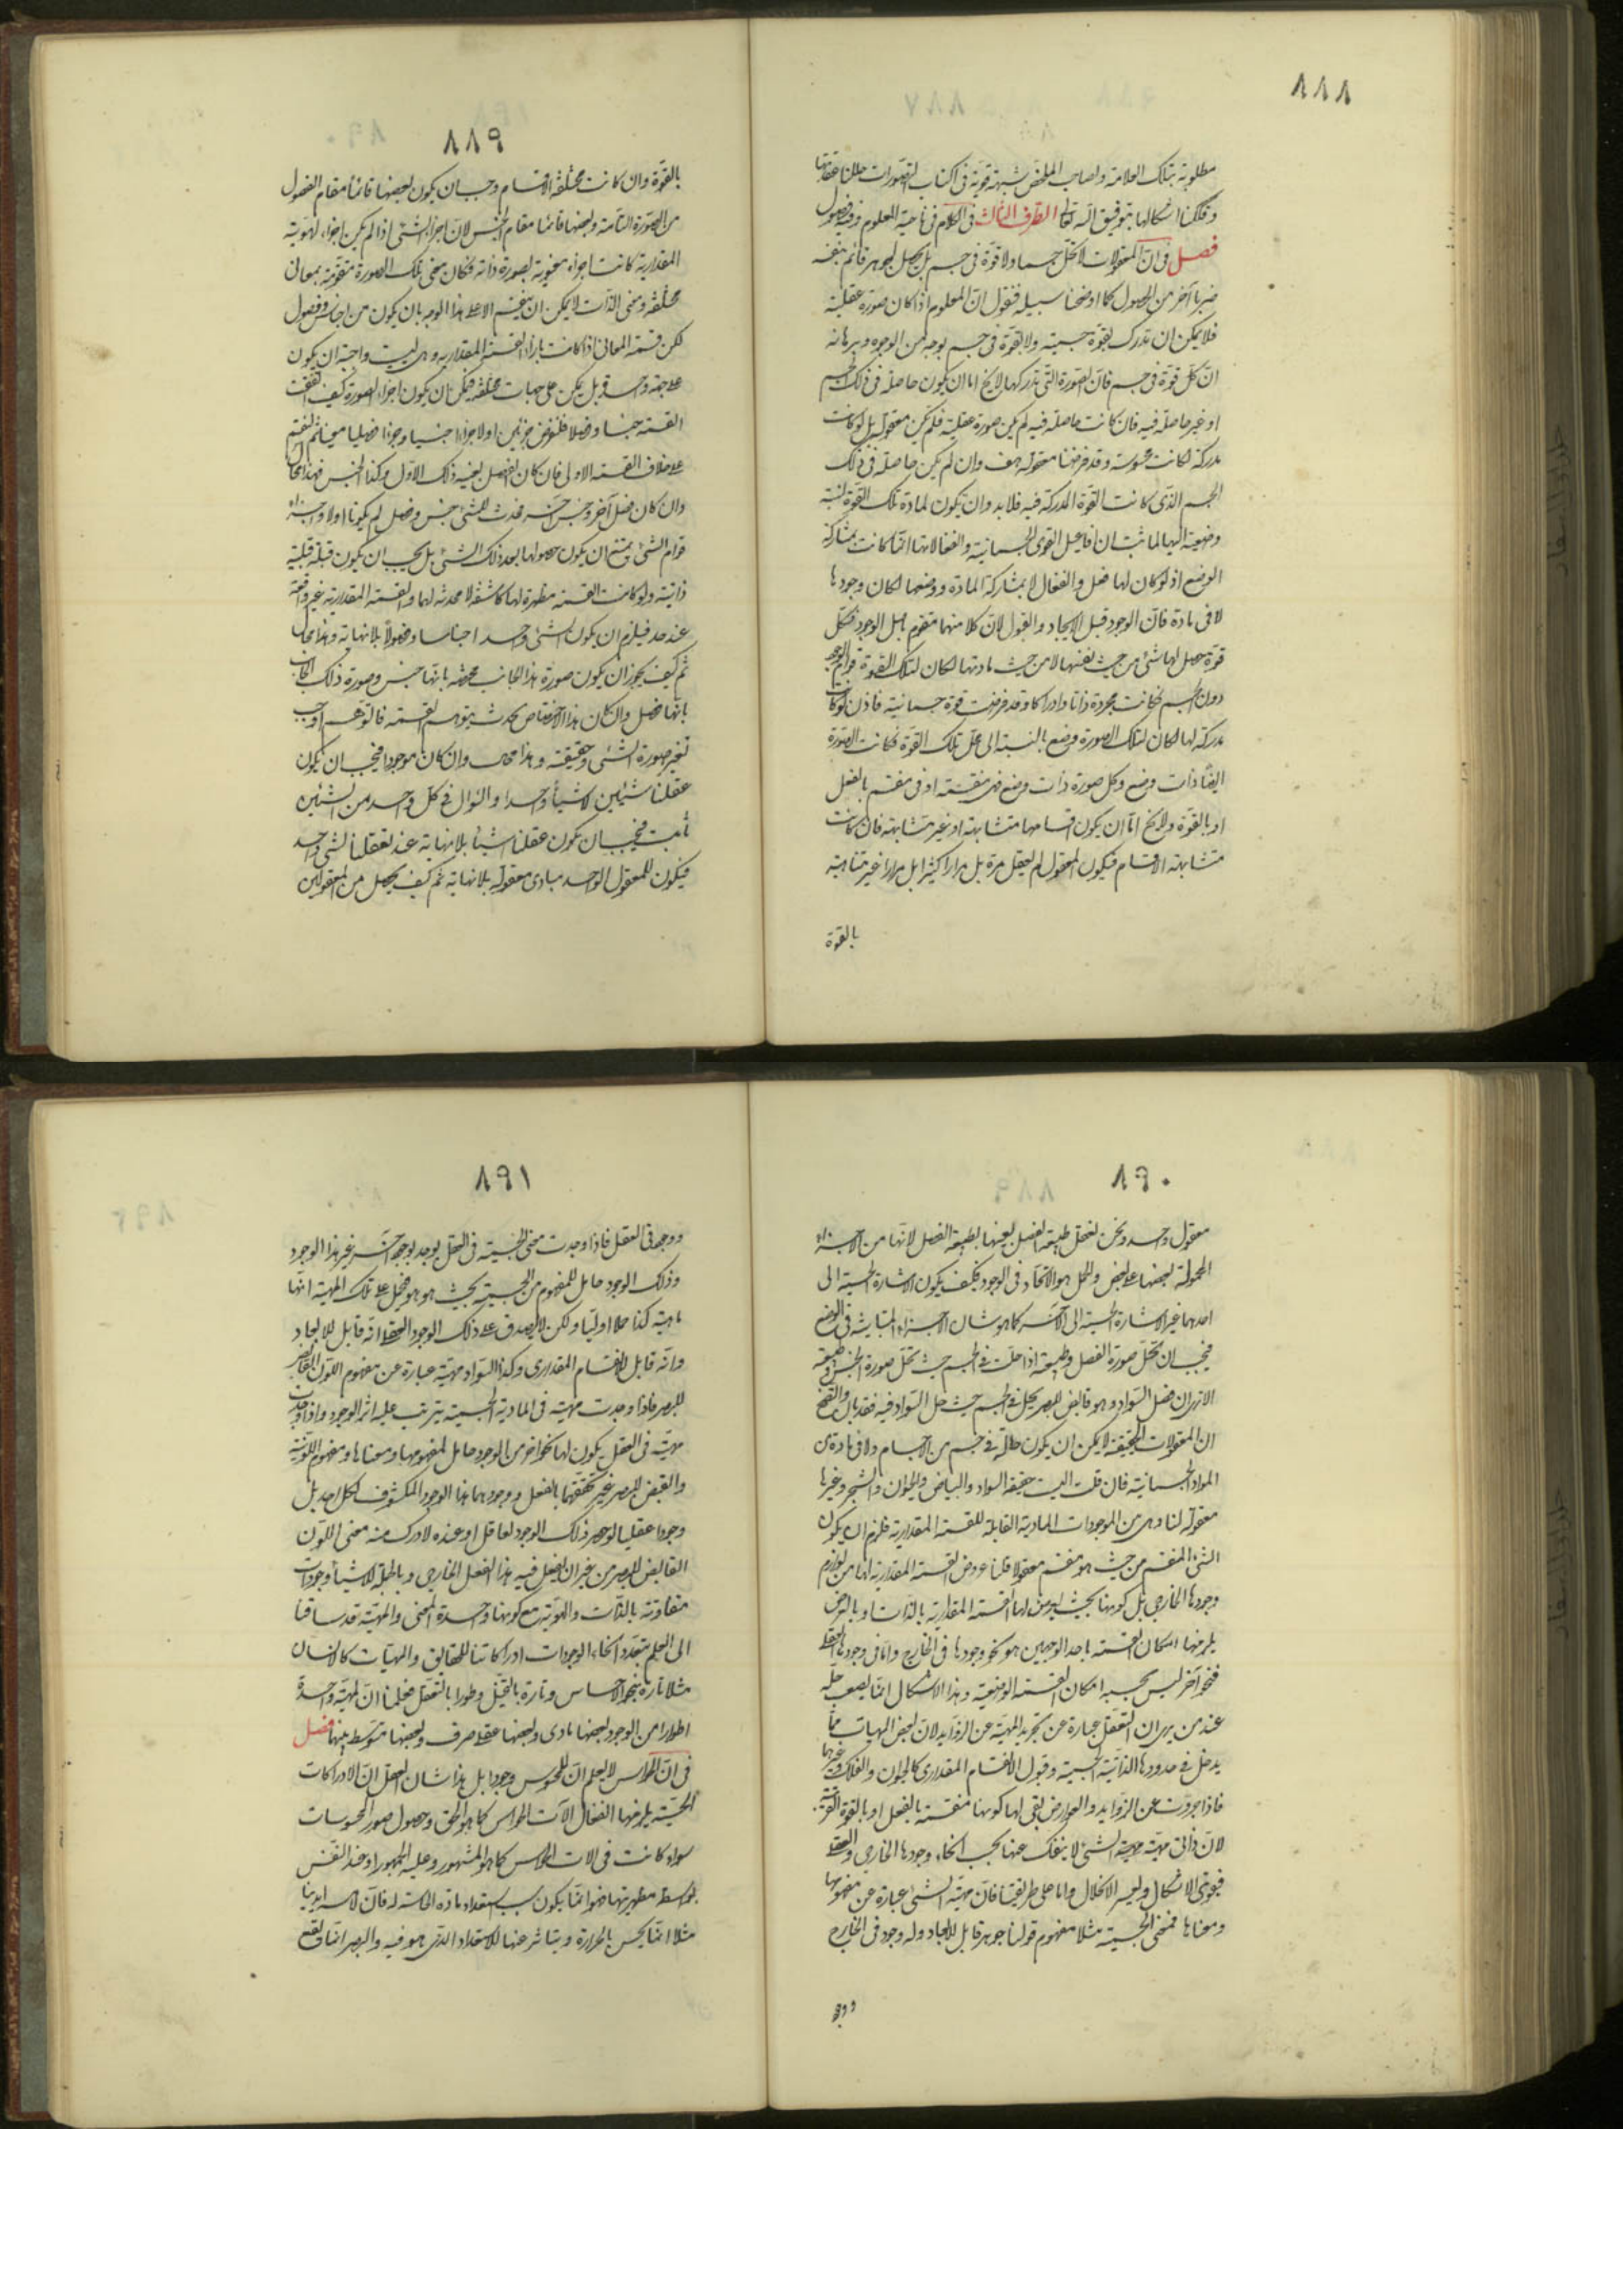 ٨٨٨
مطلوبة بتلك العلامة ولصاحب الملخص شبهة قوية في اكتساب التصورات حللنا عقدتها
وفككنا اشكالها بتوفيق الله تعالى الطرف الثالث في الكلام في ناحية المعلوم وفيه فصول
فصل في ان المعقولات لا تحل جسما ولا قوة في جسم بل يحصل لجوهر قائم بنفسه
ضربا آخر من الحصول كما اوضحنا سبيله فنقول ان المعلوم اذا كان صورة عقلية
فلا يمكن ان تدرك بقوة جسمية ولا بقوة في جسم بوجه من الوجوه وبرهانه
ان كل قوة في جسم فان الصورة التي تدركها لا يخ اما ان يكون حاصلة في ذلك الجسم
او غير حاصلة فيه فان كانت حاصلة فيه لم يكن صورة عقلية فلم تكن معقولة بل لو كانت
مدركة لكانت محسوسة وقد فرضنا معقولة هف وان لم يكن حاصلة في ذلك
الجسم الذي كانت القوة المدركة فيه فلا بد وان يكون لمادة تلك القوة نسبة
وضعية اليها لما ثبت ان افاعيل القوى الجسمانية وانفعالاتها انما كانت بمشاركة
الوضع اذ لو كان لها فعل وانفعال لا بمشاركة المادة ووضعها لكان وجودها
لا في مادة فان الوجود قبل الايجاد والقبول لان كلا منهما متقوم باصل الوجود فكل
قوة حصل لها شيء من حيث نفسها لا من حيث مادتها لكان لتلك القوة قوام الوجود
دون الجسم فكانت مجردة ذاتا وادراكا وقد فرضت قوة جسمانية فاذن لو كانت
مدركة لها لكان لتلك الصورة وضع بالنسبة الى محل تلك القوة فكانت الصورة
ايضا ذات وضع وكل صورة ذات وضع فهي منقسمة او في منقسم بالفعل
او بالقوة ولا يخ اما ان يكون اقسامها متشابهة او غير متشابهة فان كانت
متشابهة الاقسام فيكون المعقول لم يعقل مرة بل مرارا كثيرا بل مرارا غير متناهية
بالقوة
٨٨٩
بالقوة وان كانت مختلفة الاقسام وجب ان يكون بعضها قائما مقام الفصول
من الصورة التامة وبعضها قائما مقام الجنس لان اجزاء الشئ اذا لم يكن اجزاء لهويته
المقدارية كانت اجزاء معنوية لصورة ذاته فكان معنى تلك الصورة متقومة بمعاني
مختلفة ومعنى الذات لا يمكن ان ينقسم الا على هذا الوجه بان يكون من اجناس وفصول
لكن قسمة المعاني اذا كانت بازاء القسمة المقدارية وهي ليست واجبة ان يكون
على جهة واحدة بل يمكن على جهات مختلفة فيمكن ان يكون اجزاء الصورة كيف اتفقت
القسمة جنسا وفصلا فلنفرض جزئين اولا جزءا جنسيا وجزءا فصليا معينا ثم لنقسم
على خلاف القسمة الاولى فان كان الفصل بعينه ذلك الاول وكذا الجنس فهذا محال
وان كان فصل آخر وجنس آخر فحدث للشئ جنس وفصل لم يكونا اولا واجزاء
قوام الشئ يمتنع ان يكون حصولها بعد ذلك الشئ بل يجب ان يكون قبله قبلية
ذاتية ولو كانت القسمة مظهرة لها كاشفة لا محدثة لها والقسمة المقدارية غير واقفة
عند حد فيلزم ان يكون لشئ واحد اجناسا وفصولا بلا نهاية وهذا محال
ثم كيف يجوز ان يكون صورة هذا الجانب مختصة بانها جنس وصورة ذلك الجانب
بانها فصل وان كان هذا الاختصاص يحدث بتوهم القسمة فالتوهم اوجب
تغير صورة الشئ وحقيقته وهذا محال وان كان موجودا فيجب ان يكون
عقلنا شيئين لا شيئا واحدا والسؤال في كل واحد من الشيئين
ثابت فيجب ان يكون عقلنا شيئا بلا نهاية عند تعقلنا لشئ واحد
فيكون للمعقول الواحد مبادي معقولة بلا نهاية ثم كيف يحصل من المعقولين
٨٩٠
معقول واحد ونحن نعقل طبيعة الفصل بعينها لطبيعة الفصل لانها من الاجزاء
المحمولة بعضها على بعض والحمل هو الاتحاد في الوجود فكيف يكون الاشارة الحسية الى
احدهما غير الاشارة الحسية الى الآخر كما هو شان الاجزاء المتباينة في الوضع
فيجب ان تحل صورة الفصل وطبيعته اذا حلت في الجسم حيث تحل صورة الجنس وطبيعته
الا ترى ان فصل السواد وهو قابض للبصر يحل في الجسم حيث حل السواد فيه فقد بان واتضح
ان المعقولات الحقيقية لا يمكن ان يكون حالة في جسم من الاجسام ولا في مادة من
المواد الجسمانية فان قلت اليست حقيقة السواد والبياض والحيوان والشجر وغيرها
معقولة لنا وهي من الموجودات المادية القابلة للقسمة المقدارية فلزم ان يكون
الشئ المنقسم من حيث هو منقسم معقولا قلنا عروض القسمة المقدارية لها من لوازم
وجودها الخارجي بل كونها بحيث يعرض لها القسمة المقدارية بالذات او بالعرض
يلزمها امكان القسمة باحد الوجهين هو نحو وجودها في الخارج واما في وجودها العقلي
فنحو آخر ليس بحسبه امكان القسمة الوضعية وهذا الاشكال انما يصعب حله
عند من يرى ان التعقل عبارة عن تجريد المهية عن الزوايد لان بعض المهيات مما
يدخل في حدودها الذاتية الجسمية وقبول الانقسام المقداري كالحيوان والفلك وغيرها
فاذا جردت عن الزوايد والعوارض بقي لها كونها منقسمة بالفعل او بالقوة القريبة
لان ذاتي مهية الشئ لا ينفك عنها بحسب انحاء وجودها الخارجي والعقلي
فيقوى الاشكال ويعسر الانحلال واما على طريقتنا فان مهية الشئ عبارة عن مفهومها
ومعناها فمعنى الجسمية مثلا مفهوم قولنا جوهر قابل للابعاد وله وجود في الخارج
ووجود
٨٩١
ووجود في العقل فاذا وجدت معنى الجسمية في العقل يوجد بوجه آخر غير هذا الوجود
وذلك الوجود حامل للمفهوم من الجسمية بحيث هو هو فيحمل على تلك المهية انها
ماهية كذا حملا اوليا ولكن لا يصدق على ذلك الوجود العقلي انه قابل للابعاد
وانه قابل للانقسام المقداري وكذا السواد مهية عبارة عن مفهوم اللون القابض
للبصر فاذا وجدت مهيته في المادة الجسمية يترتب عليه اثر الوجود واذا وجدت
مهيته في العقل يكون لها نحو آخر من الوجود حامل لمفهومها ومعناها ومفهوم اللونية
والقبض للبصر غير تحققهما بالفعل ووجودهما هذا الوجود المكشوف لكل احد بل
وجودا عقليا لو حضر ذلك الوجود لعاقل او عنده لادرك منه معنى اللون
القابض للبصر من غير ان يفعل فيه هذا الفعل الخارجي وبالجملة للاشياء وجودات
متفاوتة بالذات والهوية مع كونها واحدة المعنى والمهية قد ساقنا
الى العلم بتعدد انحاء الوجودات ادراكاتنا للحقايق والمهيات كالانسان
مثلا تارة بنحو الاحساس وتارة بالتخيل وطورا بالتعقل فعلمنا ان لمهية واحدة
اطوارا من الوجود بعضها مادي وبعضها عقلي صرف وبعضها متوسط بينهما فصل
في ان الحواس لا يعلم ان للمحسوس وجودا بل هذا شان العقل ان الادراكات
الحسية يلزمها انفعال آلات الحواس كما هو الحق وحصول صور المحسوسات
سواء كانت في الات الحواس كما هو المشهور وعليه الجمهور او عند النفس
بواسطة مظهريتها فهو انما يكون بسبب استعداد مادة الحاسة له فان لامسة ايدينا
مثلا انما يحس بالحرارة ويتاثر عنها للاستعداد الذي هو فيه والبصر انما تقع